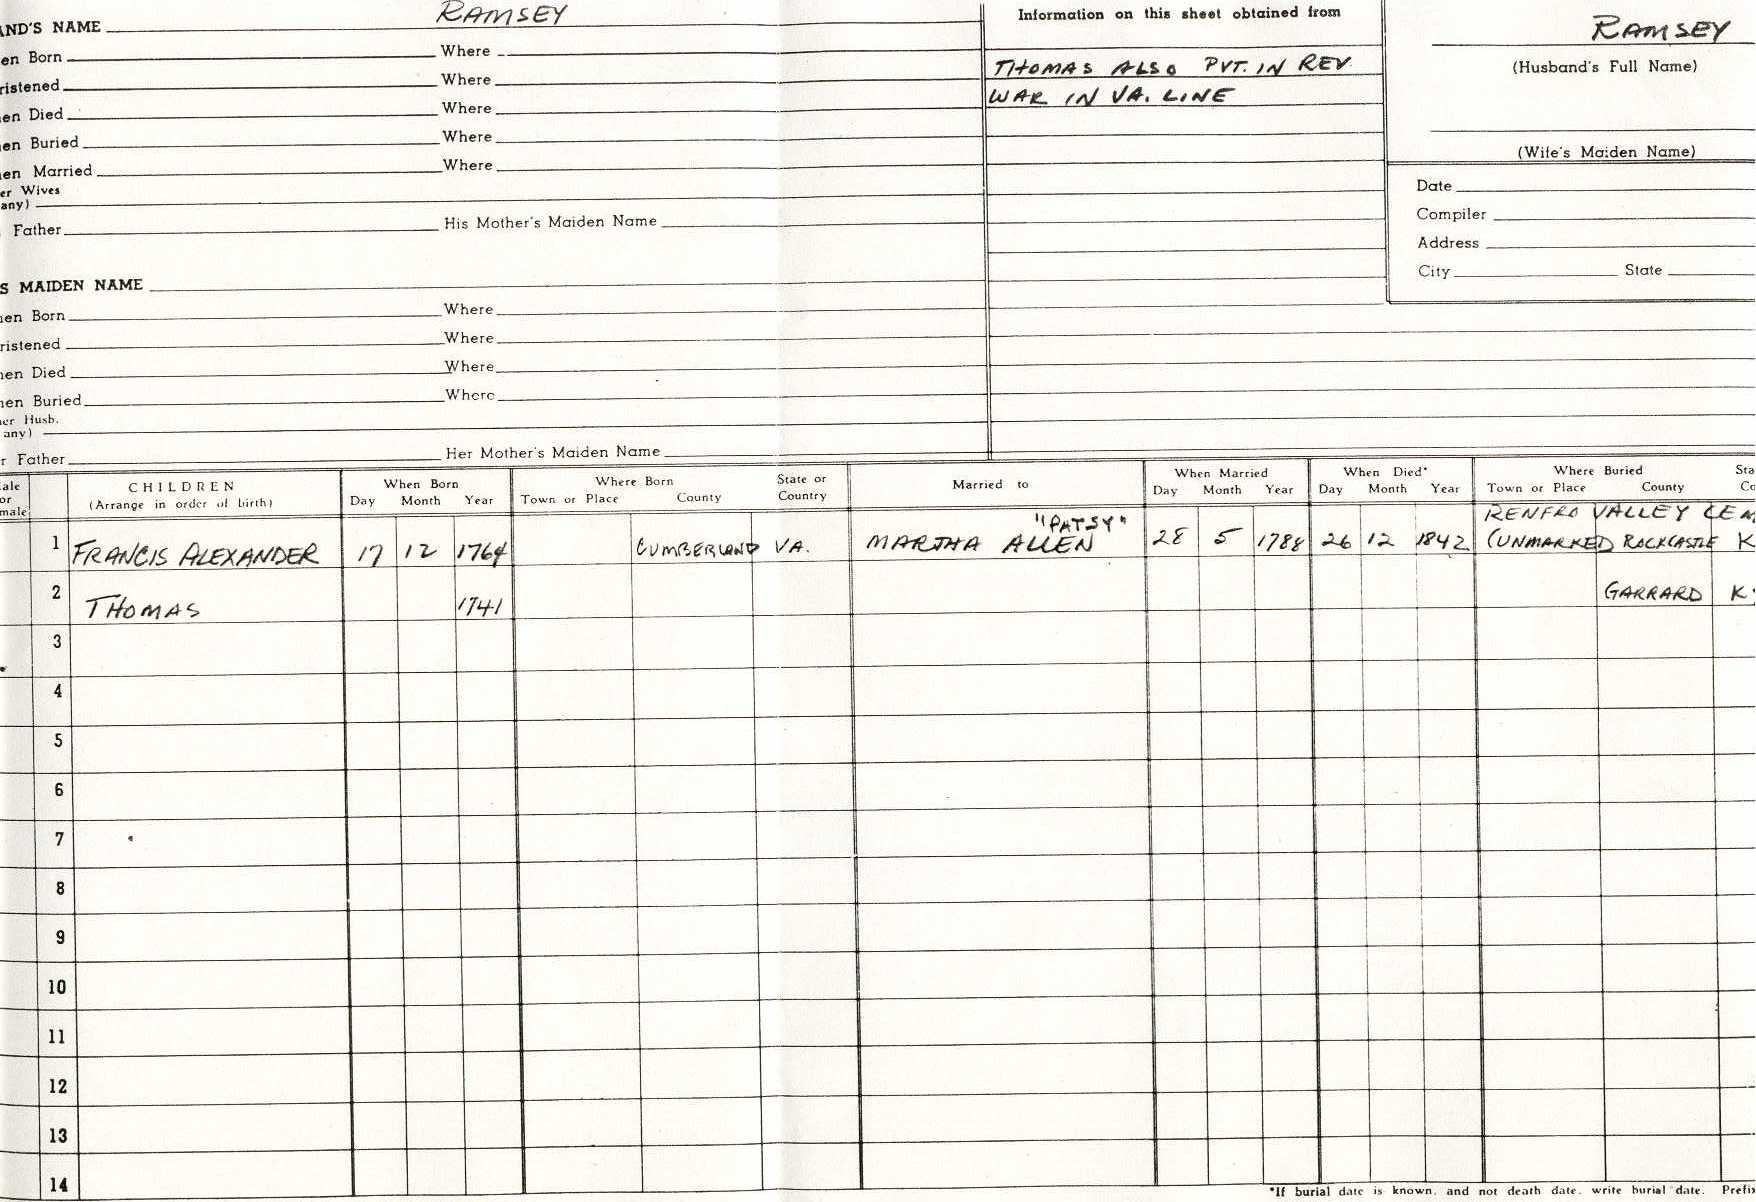 AND'S NAME RAMSEY
en Born Where
ristened Where
en Died Where
en Buried Where
en Married Where
er Wives
any)
Father His Mother's Maiden Name
S MAIDEN NAME
en Born Where
ristened Where
en Died Where
en Buried Where
er Husb.
any)
r Father Her Mother's Maiden Name
Information on this sheet obtained from
THOMAS ALSO PVT. IN REV
WAR IN VA. LINE
RAMSEY
(Husband's Full Name)
(Wife's Maiden Name)
Date
Compiler
Address
City State
ale
or
male
CHILDREN
(Arrange in order of birth)
When Born
Day Month Year
Where Born
Town or Place County
State or
Country
Married to
When Married
Day Month Year
When Died*
Day Month Year
Where Buried
Town or Place County
Sta
Co
"PATSY" RENFRO VALLEY CEM
1 FRANCIS ALEXANDER 17 12 1764 CUMBERLAND VA. MARTHA ALLEN 28 5 1788 26 12 1842 (UNMARKED ROCKCASTLE K
2 THOMAS 1741 GARRARD KY
3
4
5
6
7
8
9
10
11
12
13
14
*If burial date is known, and not death date, write burial date. Prefix